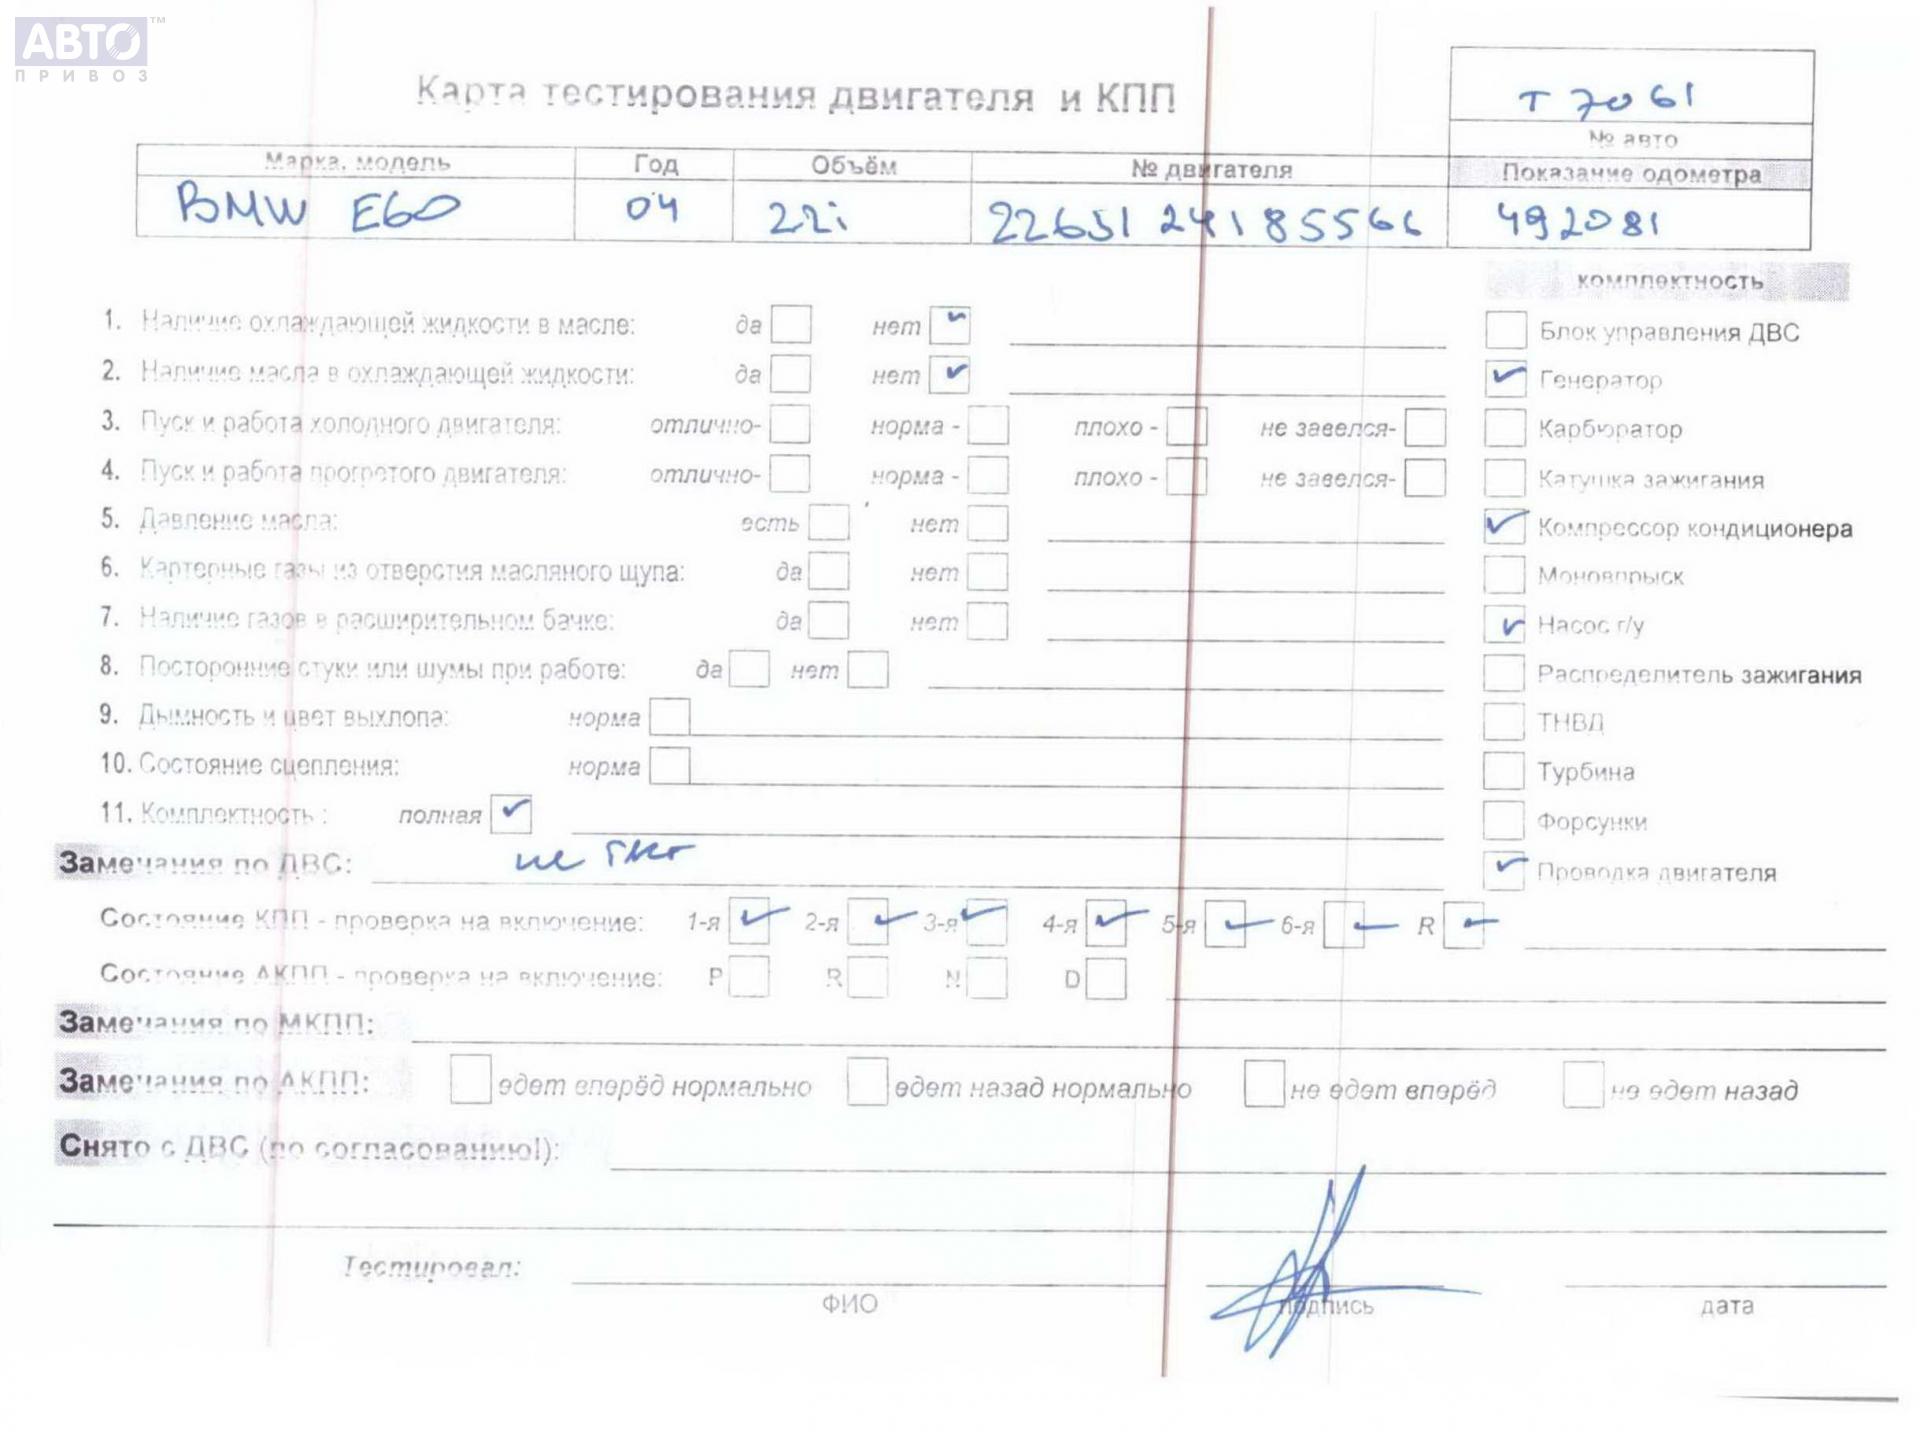 АВТО™
ПРИВОЗ
Карта тестирования двигателя и КПП
Т 7061
№ авто
Марка, модель Год Объём № двигателя Показание одометра
BMW E60 04 22i 22651 24185566 492081
комплектность
1. Наличие охлаждающей жидкости в масле: да нет ✓
Блок управления ДВС
2. Наличие масла в охлаждающей жидкости: да нет ✓
✓ Генератор
3. Пуск и работа холодного двигателя: отлично- норма - плохо - не завелся-
Карбюратор
4. Пуск и работа прогретого двигателя: отлично- норма - плохо - не завелся-
Катушка зажигания
5. Давление масла: есть нет
✓ Компрессор кондиционера
6. Картерные газы из отверстия масляного щупа: да нет
Моновпрыск
7. Наличие газов в расширительном бачке: да нет
✓ Насос г/у
8. Посторонние стуки или шумы при работе: да нет
Распределитель зажигания
9. Дымность и цвет выхлопа: норма
ТНВД
10. Состояние сцепления: норма
Турбина
11. Комплектность : полная ✓
Форсунки
Замечания по ДВС: не
✓ Проводка двигателя
Состояние КПП - проверка на включение: 1-я ✓ 2-я ✓ 3-я ✓ 4-я ✓ 5-я ✓ 6-я ✓ R ✓
Состояние АКПП - проверка на включение: P R N D
Замечания по МКПП:
Замечания по АКПП: едет вперёд нормально едет назад нормально не едет вперёд не едет назад
Снято с ДВС (по согласованию!):
Тестировал:
ФИО подпись дата